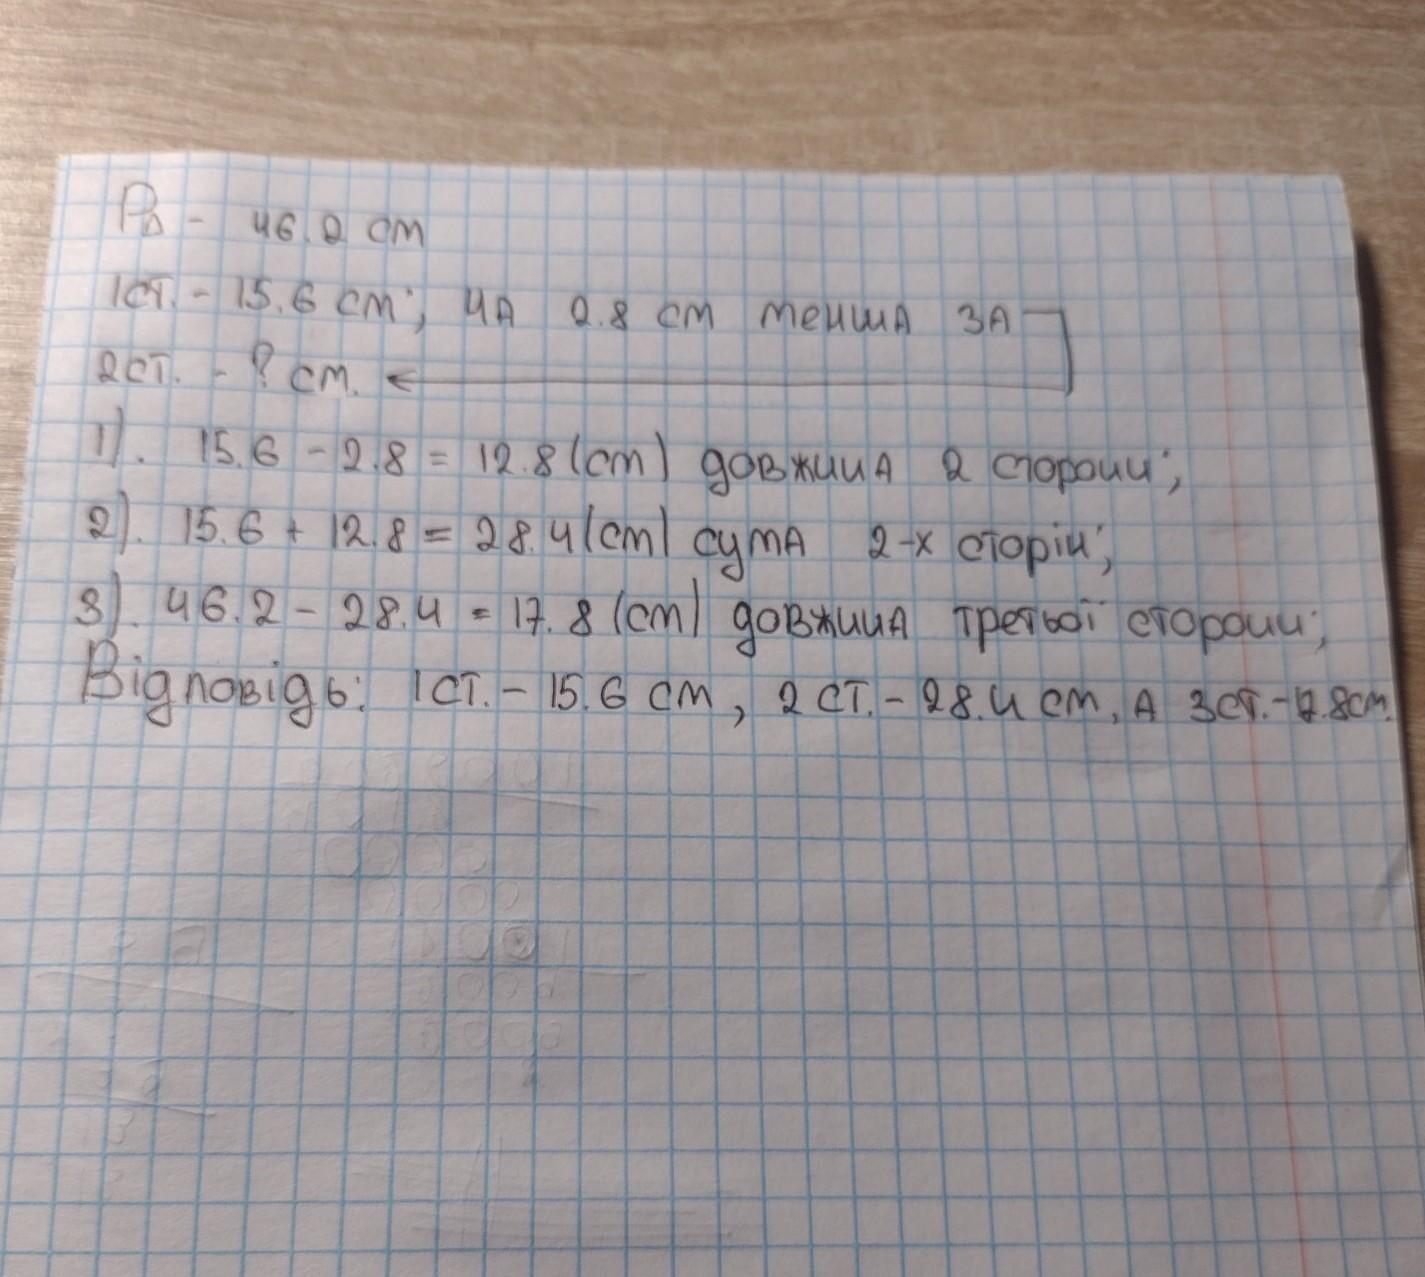 P△ - 46.2 см
1ст. - 15.6 см; на 2.8 см менша за
2ст. - ? см.
1). 15.6 - 2.8 = 12.8 (см) довжина 2 сторони;
2). 15.6 + 12.8 = 28.4 (см) сума 2-х сторін;
3). 46.2 - 28.4 = 17.8 (см) довжина третьої сторони;
Відповідь: 1ст. - 15.6 см, 2ст. - 28.4 см, а 3ст. - 17.8см.